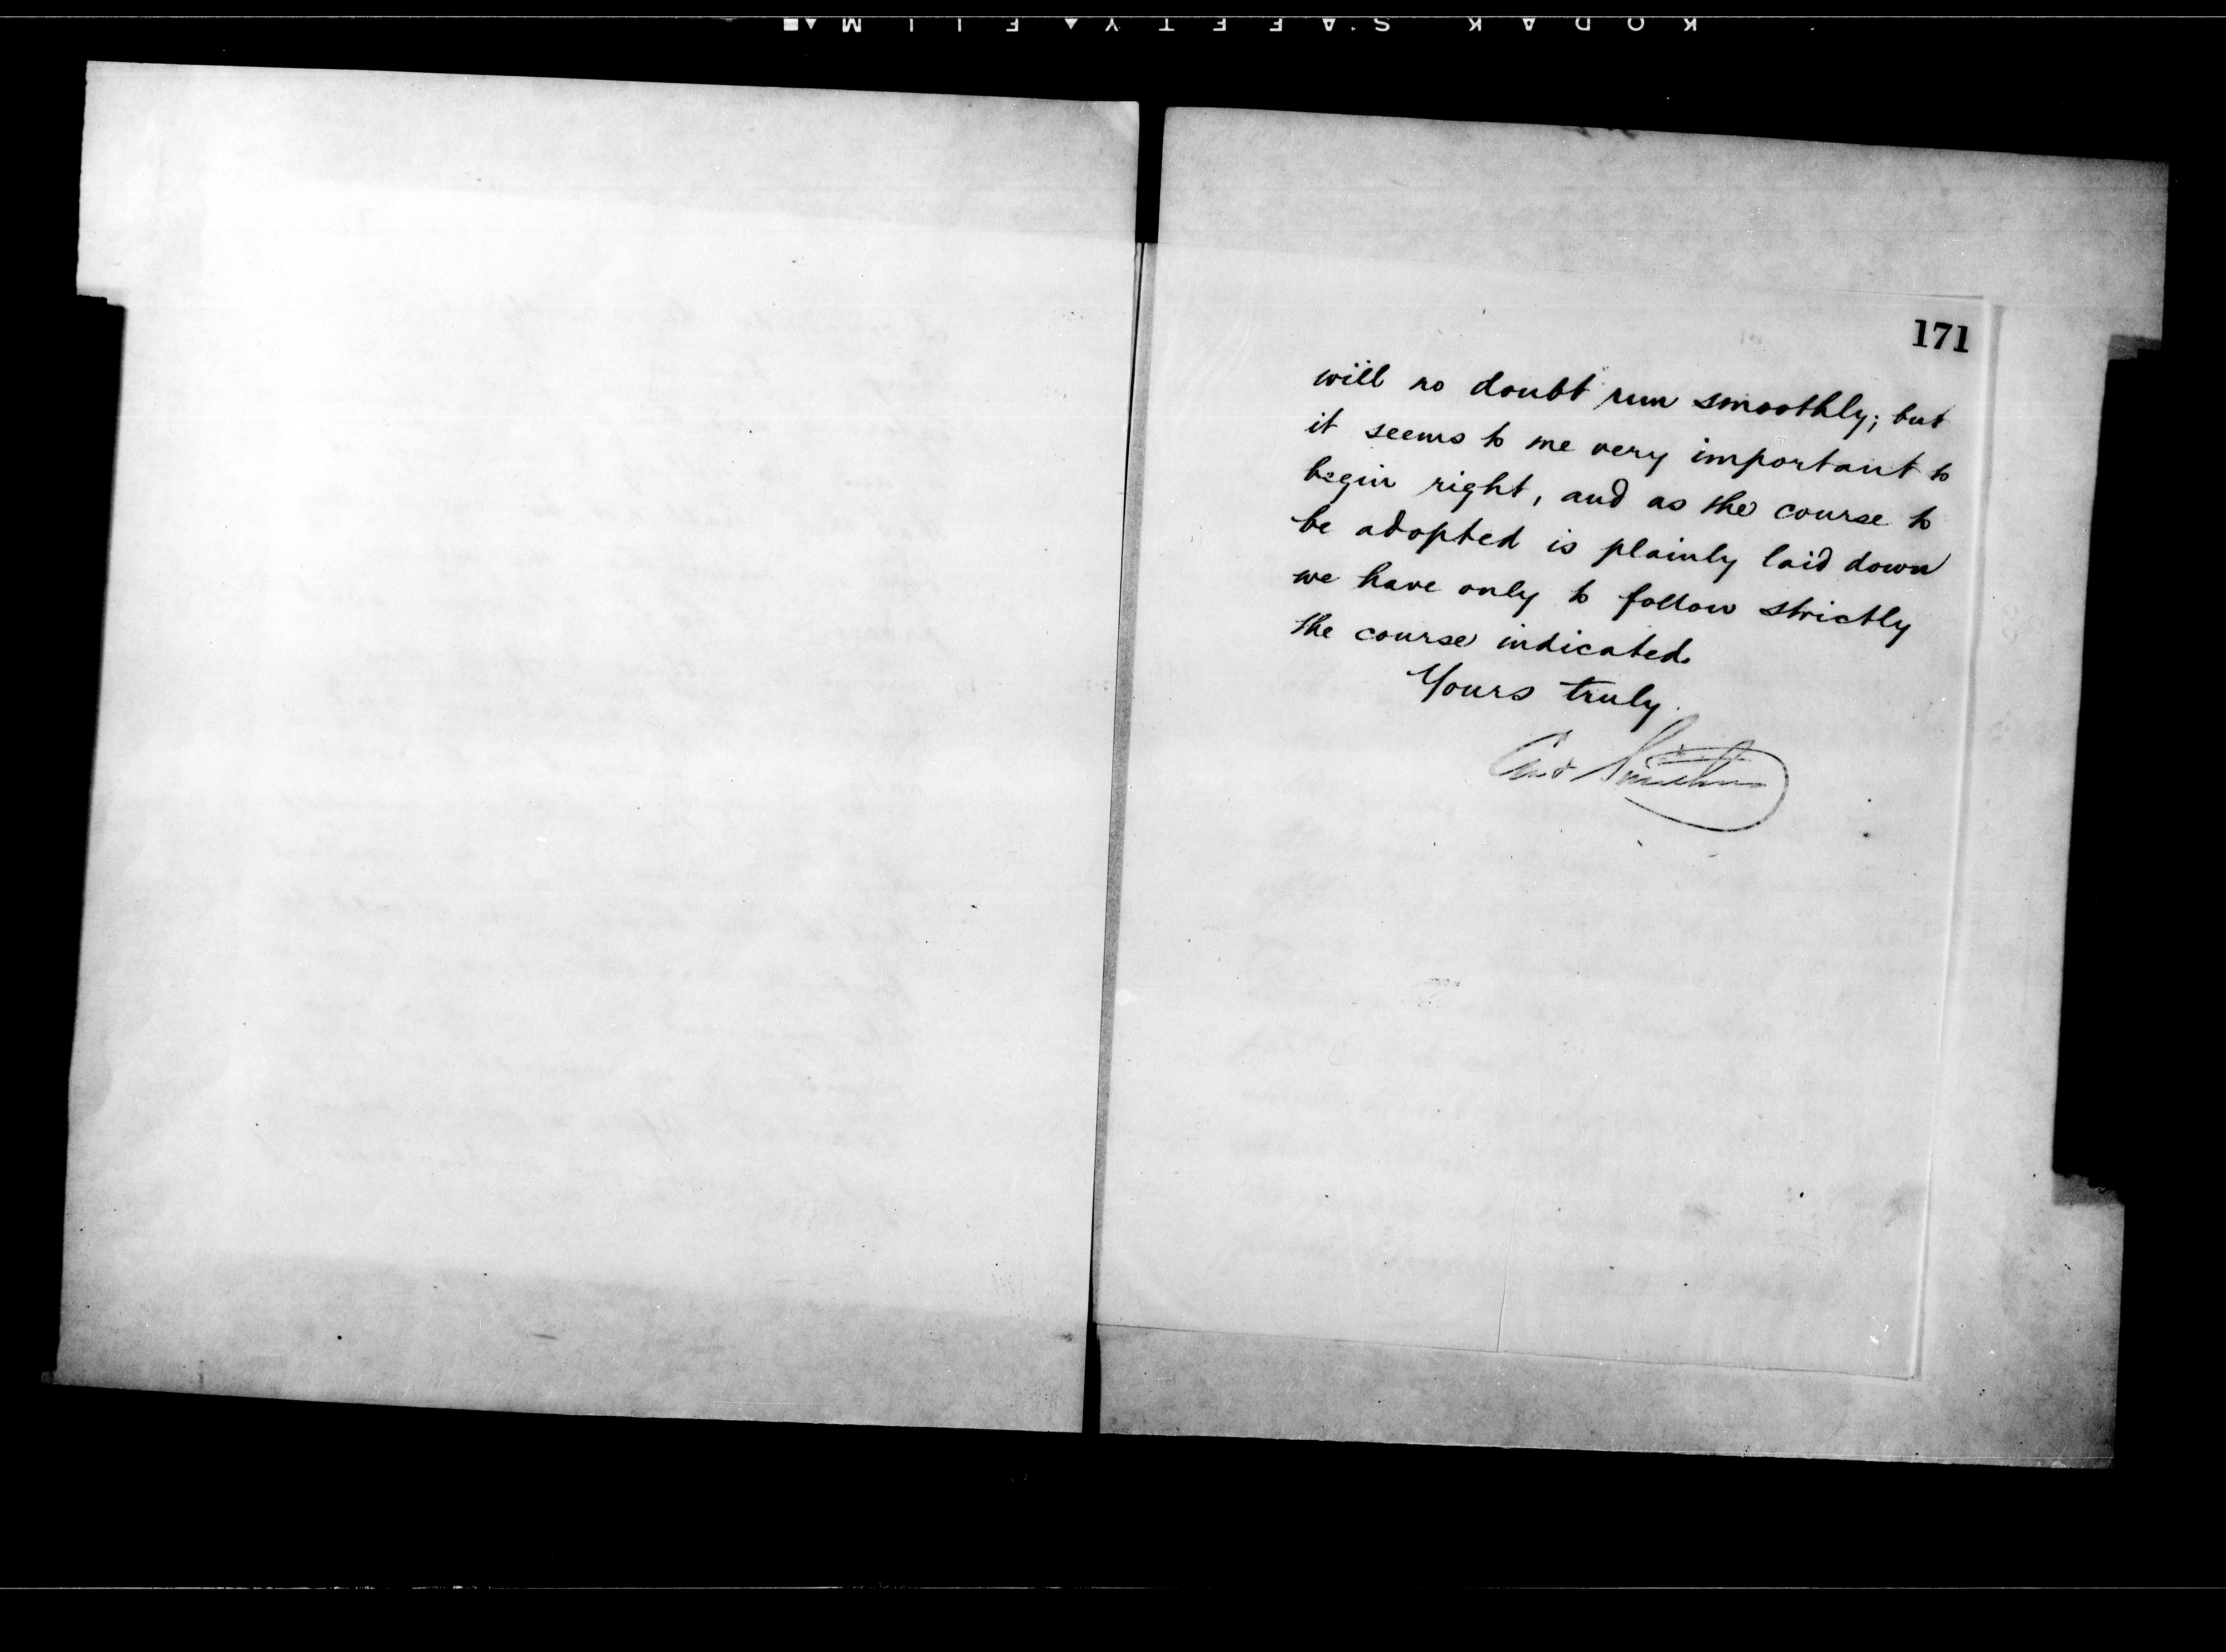 KODAK SAFETY FILM
171
will no doubt run smoothly; but
it seems to me very important to
begin right, and as the course to
be adopted is plainly laid down
we have only to follow strictly
the course indicated.
Yours truly.